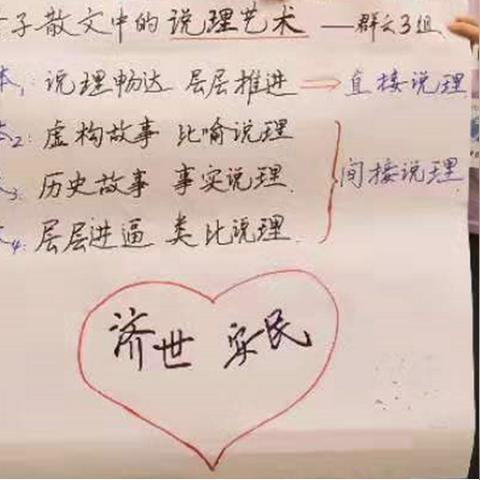 子散文中的说理艺术 ——群文3组
本1: 说理畅达 层层推进 → 直接说理
本2: 虚构故事 比喻说理
本3: 历史故事 事实说理 间接说理
本4: 层层进逼 类比说理
济世 安民